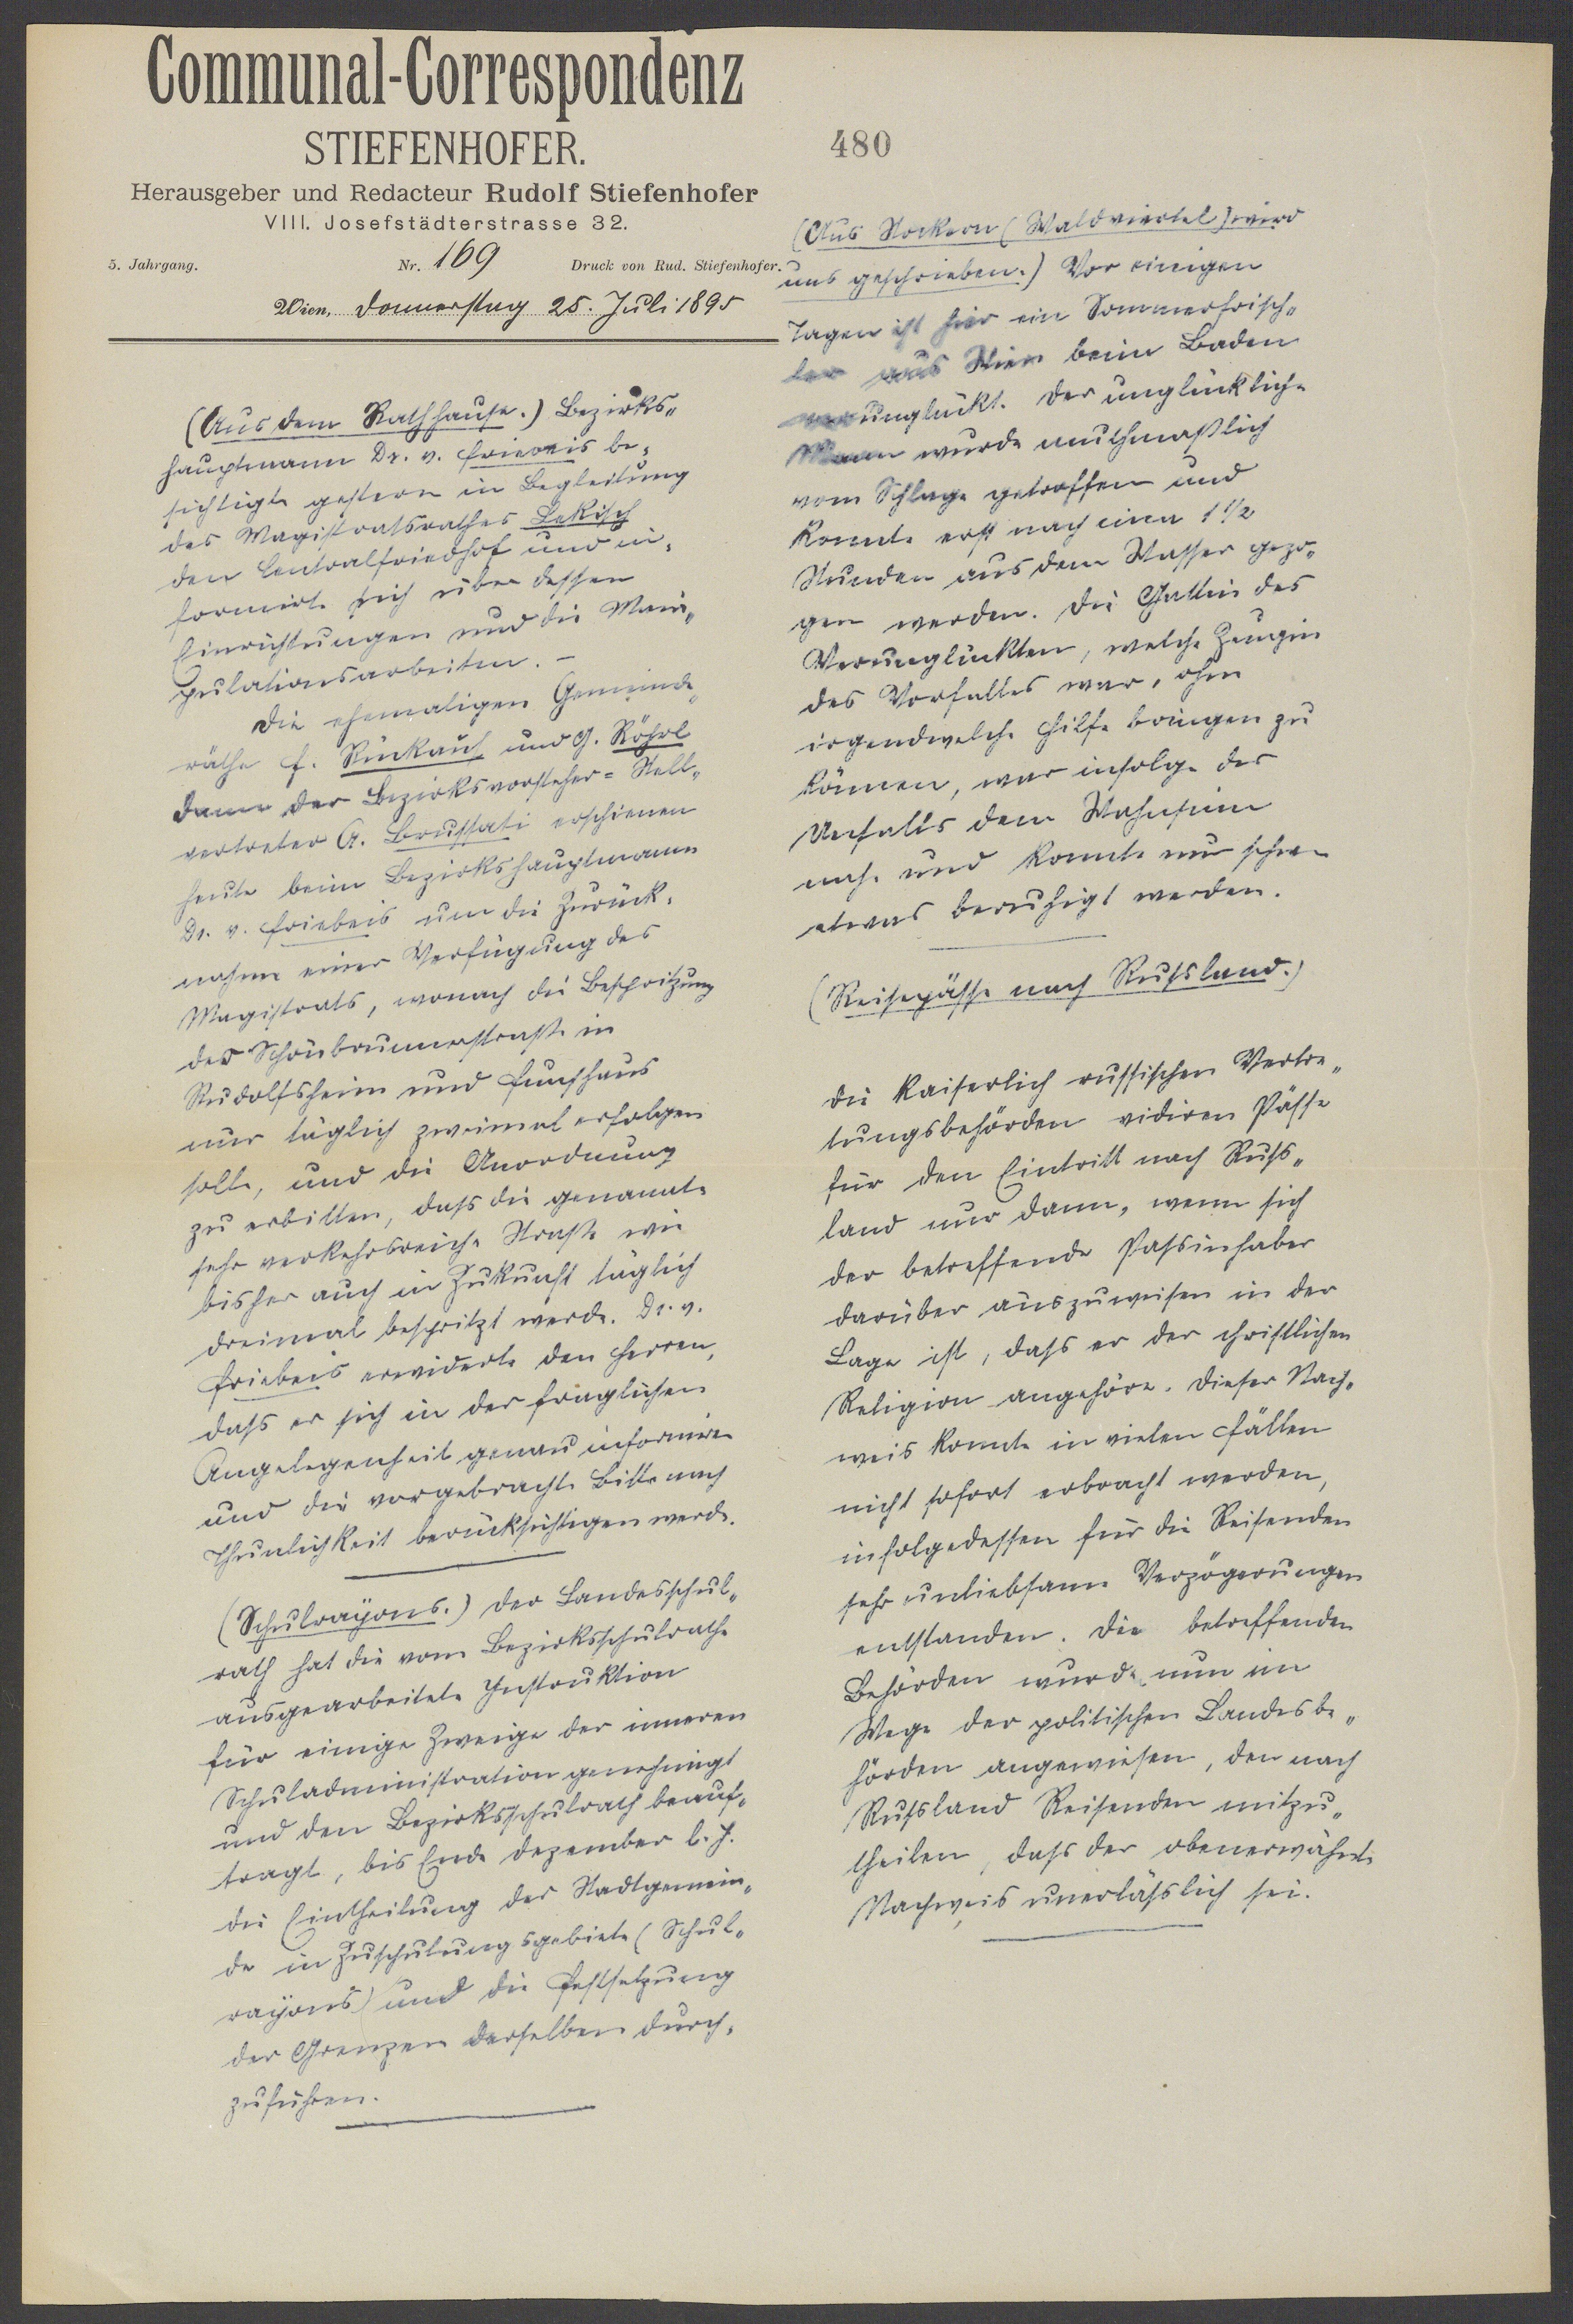 Communal-Correspondenz
STIEFENHOFER.
Herausgeber und Redacteur Rudolf Stiefenhofer
VIII. Josefstädterstrasse 32.
5. Jahrgang. Nr. 169 Druck von Rud. Stiefenhofer.
Wien, Donnerstag 25. Juli 1895
(Aus dem Rathhause.) Bezirks-
hauptmann Dr. v. Friebeis be-
sichtigte gestern in Begleitung
des Magistratsrathes Lekisch
den Centralfriedhof und in-
formirte sich über dessen
Einrichtungen und die Mani-
pulationsarbeiten. –
Die ehemaligen Gemeinde-
räthe F. Rückauf und G. Röhrl
dann der Bezirksvorsteher-Stell-
vertreter A. Brussati erschienen
heute beim Bezirkshauptmann
Dr. v. Friebeis um die Zurück-
nahme einer Verfügung des
Magistrats, wonach die Bespritzung
der Schönbrunnerstraße in
Rudolfsheim und Fünfhaus
nur täglich zweimal erfolgen
solle, und die Anordnung
zu erbitten, dass die genannte
sehr verkehrsreiche Straße wie
bisher auch in Zukunft täglich
dreimal bespritzt werde. Dr. v.
Friebeis erwiderte den Herren,
dass er sich in der fraglichen
Angelegenheit genau informiren
und die vorgebrachte Bitte nach
Thunlichkeit berücksichtigen werde.
(Schulrayons.) Der Landesschul-
rath hat die vom Bezirksschulrathe
ausgearbeitete Instruktion
für einige Zweige der inneren
Schuladministration genehmigt
und den Bezirksschulrath beauf-
tragt, bis Ende Dezember l. J.
die Eintheilung der Stadtgemein-
de in Zuschulungsgebiete (Schul-
rayons) und die Festsetzung
der Grenzen derselben durch-
zuführen.
480
(Aus Stockern (Waldviertel) wird
uns geschrieben.) Vor einigen
Tagen ist hier ein Sommerfrisch-
ler aus Wien beim Baden
verunglückt. Der unglückliche
Mann wurde muthmaßlich
vom Schlage getroffen und
konnte erst nach circa 1 1/2
Stunden aus dem Wasser gezo-
gen werden. Die Gattin des
Verunglückten, welche Zeugin
des Vorfalles war, ohne
irgendwelche Hilfe bringen zu
können, war infolge des
Unfalls dem Wahnsinn
nahe und konnte nur schwer
etwas beruhigt werden.
(Reisepässe nach Russland.)
Die kaiserlich russischen Vertre-
tungsbehörden vidiren Pässe
für den Eintritt nach Russ-
land nur dann, wenn sich
der betreffende Passinhaber
darüber auszuweisen in der
Lage ist, dass er der christlichen
Religion angehöre. Dieser Nach-
weis konnte in vielen Fällen
nicht sofort erbracht werden,
infolgedessen für die Reisenden
sehr unliebsame Verzögerungen
entstanden. Die betreffenden
Behörden wurde nun im
Wege der politischen Landesbe-
hörden angewiesen, den nach
Russland Reisenden mitzu-
theilen, dass der obenerwähnte
Nachweis unerlässlich sei.